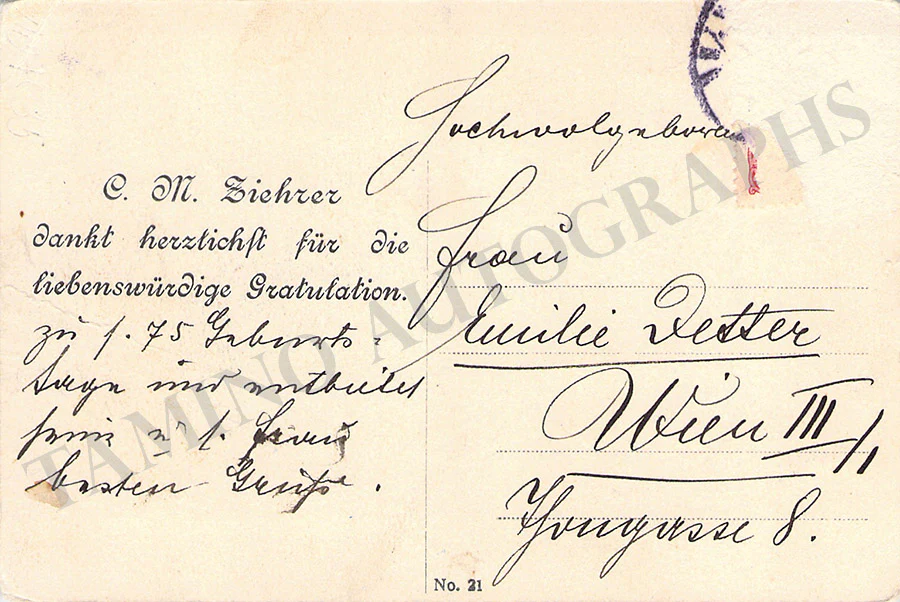 C. M. Ziehrer
dankt herzlichst für die
liebenswürdige Gratulation.
zu s. 75 Geburts-
tage und entbietet
seine u. s. Frau
besten Grüße.
Hochwolgeboren
Frau
Emilie Detter
Wien III/1
Thongasse 8.
No. 21
TAMINO AUTOGRAPHS